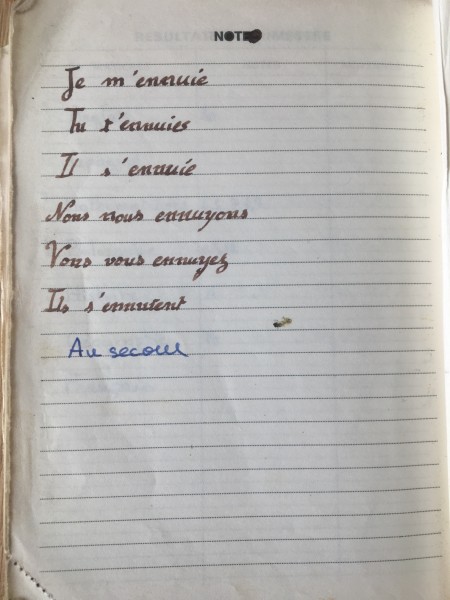 NOTE
Je m'ennuie
Tu t'ennuies
Il s'ennuie
Nous nous ennuyons
Vous vous ennuyez
Ils s'ennuient
Au secour